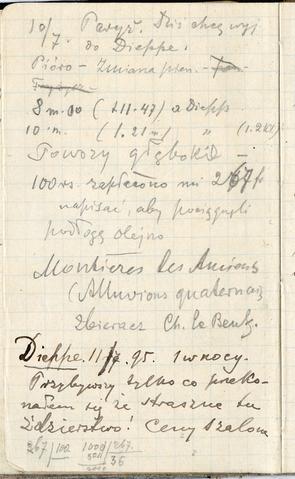 10/7. Paryż. Dziś chcę wyj
do Dieppe.
Pióro – Zmiana pien.
8 m. 00 ( 11.47) a Diepp.
10. m. ( 1.21 m) " (1.2 kl)
Towozy głębokie –
100 rs. zapłacono mi 267 fr
napisać, aby pociągnęli
podłogę olejno
Montières les Amiens
(Alluvions quaternair
Zbieracz Ch. le Beuf.
Dieppe. 11/7. 95. 1 w nocy.
Przybywszy tylko co przeko-
nałem się że straszne tu
zdzierstwo! Ceny szalone
267/100 1000/267.
36